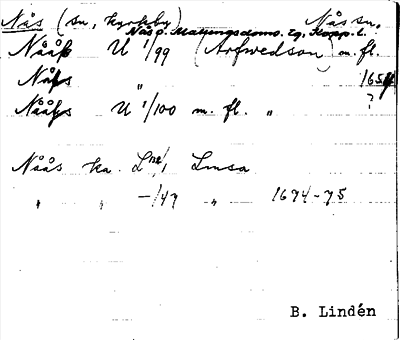 Nås (sn, kyrkby) Nås sn.
Nås o. Malungs doms. Lg. Kopp. l.
Nååſs U 1/99 (Arfwedson) m. fl.
Nåſs " 165
Nååſs U 1/100 m. fl. " ?
Nåås ka. Lmsa
" " –1/47 " 1694-75
B. Lindén